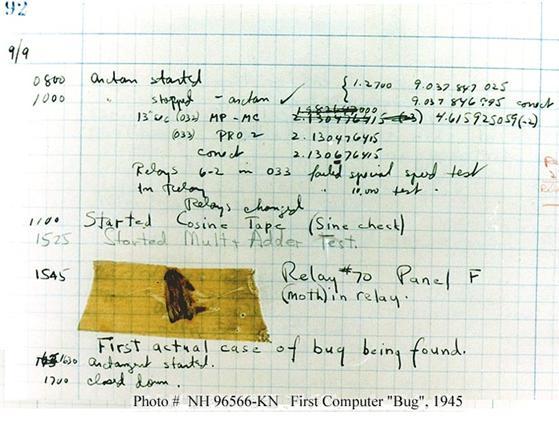 92
9/9
0800 arctan started
{ 1.2700 9.037 847 025
1000 " stopped - arctan ✓ 9.037 846 995 correct
13" uc (032) MP - MC 2.130476415 4.615925059(-2)
(033) PRO 2 2.130476415
correct 2.130676415
Relays 6-2 in 033 failed special speed test
In Relay " 10.000 test .
Relays changed
1100 Started Cosine Tape (Sine check)
1525 Started Mult + Adder Test.
1545 Relay #70 Panel F
(moth) in relay.
First actual case of bug being found.
1630 arctangent started.
1700 closed down .
Photo # NH 96566-KN First Computer "Bug", 1945